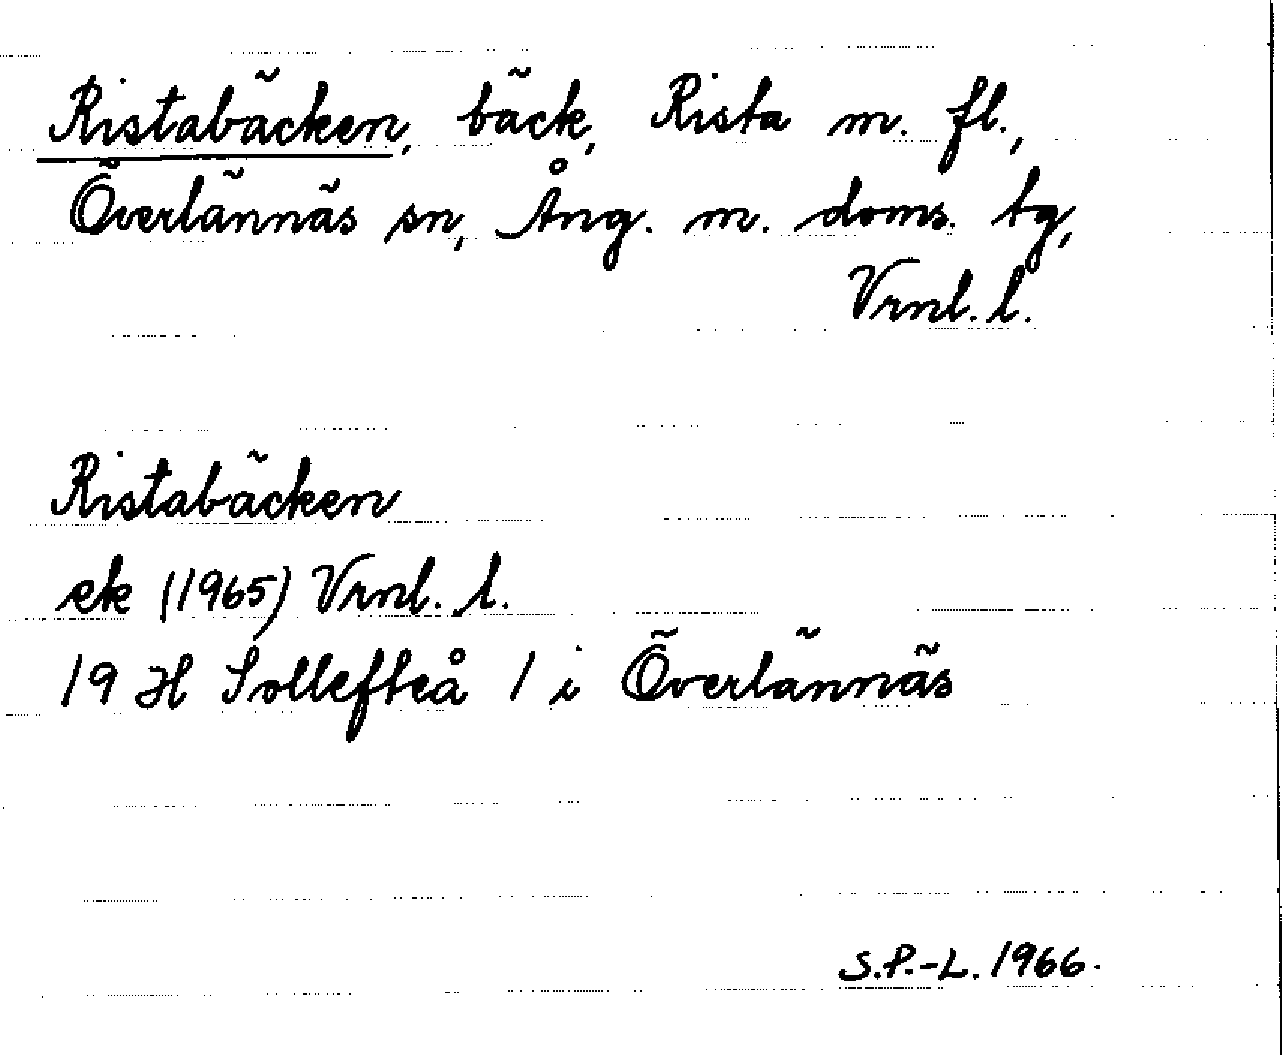 Ristabäcken, bäck, Rista m. fl.,
Överlännäs sn, Ång. m. doms. tg,
Vrnl. l.
Ristabäcken
ek (1965) Vrnl. l.
19 H Sollefteå 1 i Överlännäs
S.P.-L. 1966.